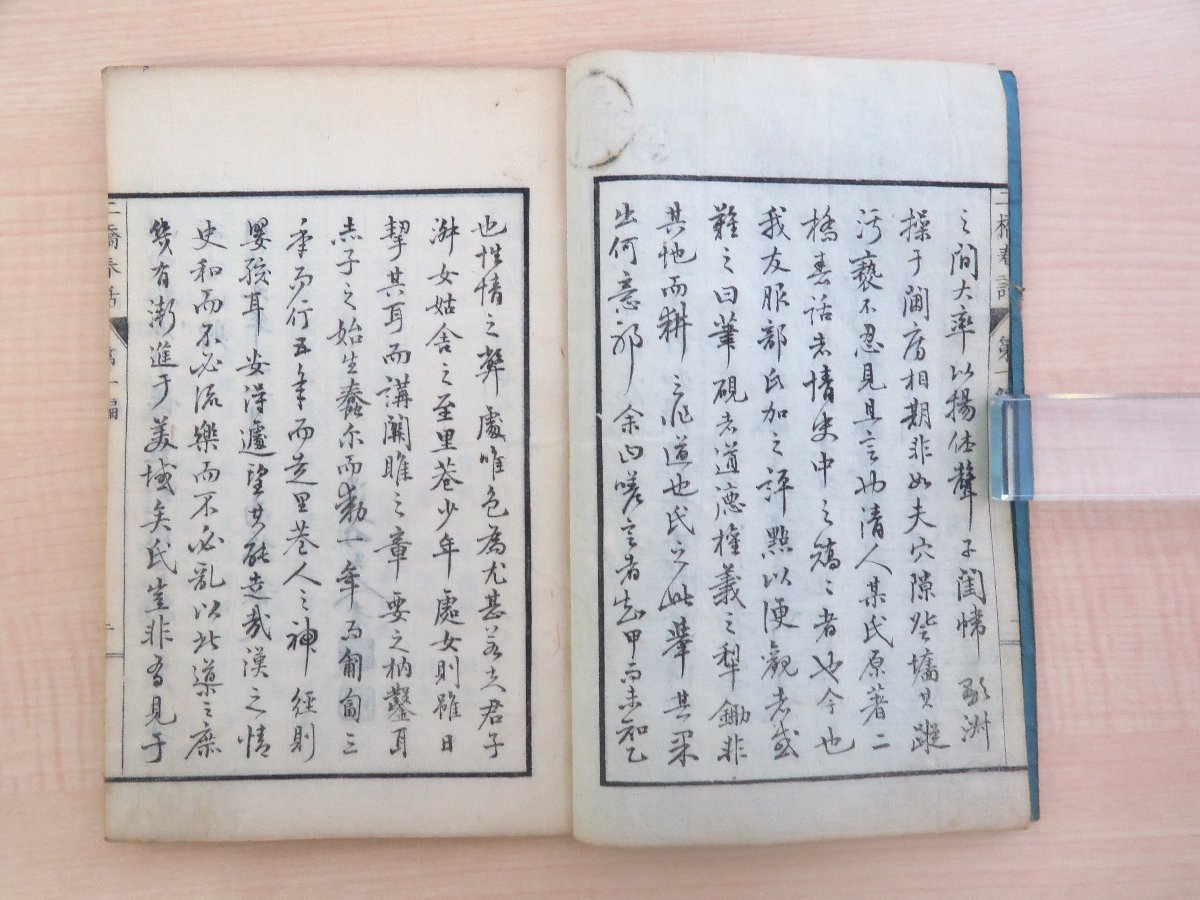 之間大率以揚仕聲于閨幃
操于閫房相期非如夫穴隙登墻其蹤
汚褻不忍見其言也清人某氏原著二
橋春話者情史中之矯々者也今也
我友服部氏加之評點以便觀者或
難之曰筆硯者道德權義之犁鋤非
其地而耕之非道也氏之此舉其果
出何意耶余曰嗟言者知甲而未知乙
也性情之弊處唯色為尤甚若夫君子
淑女姑舍之至里巷少年處女則雖日
挈其耳而講關雎之章要之枘鑿耳
赤子之始生蠢尔而啼一年而匍匐三
年而行五年而走里巷人之神經則
嬰孩耳安得遽望其能走哉漢之情
史和而不必流樂而不必亂以此導之庶
幾有漸進于美域矣氏豈非有見于
二橋春話 第一編
二橋春話 第一編